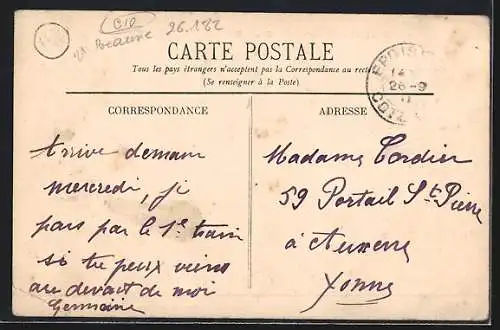 BIO
21 Beaune
26.182
CARTE POSTALE
Tous les pays étrangers n'acceptent pas la Correspondance au recto
(Se renseigner à la Poste)
CORRESPONDANCE
Arrive demain
mercredi, je
pars par le 1e train
si tu peux viens
au devant de moi
Germaine
ADRESSE
Madame Cordier
59 Portail St Pierre
à Auxerre
Yonne
26-9
11